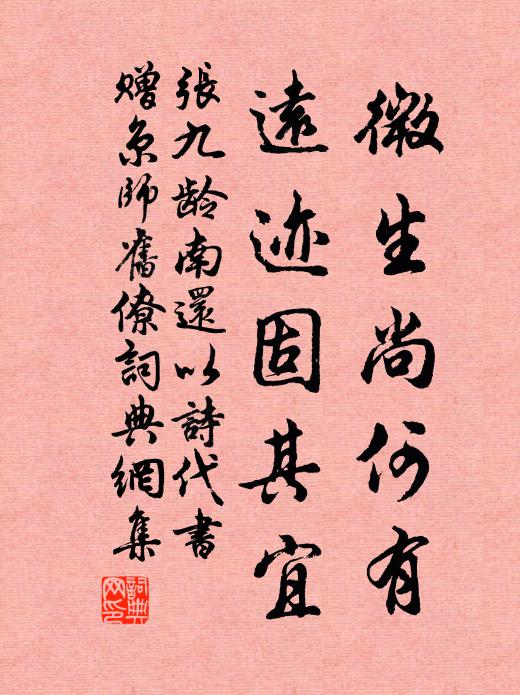 微生尚何有
遠迹固其宜
張九龄南還以詩代書
贈京師舊僚詞典網集
詞典网印